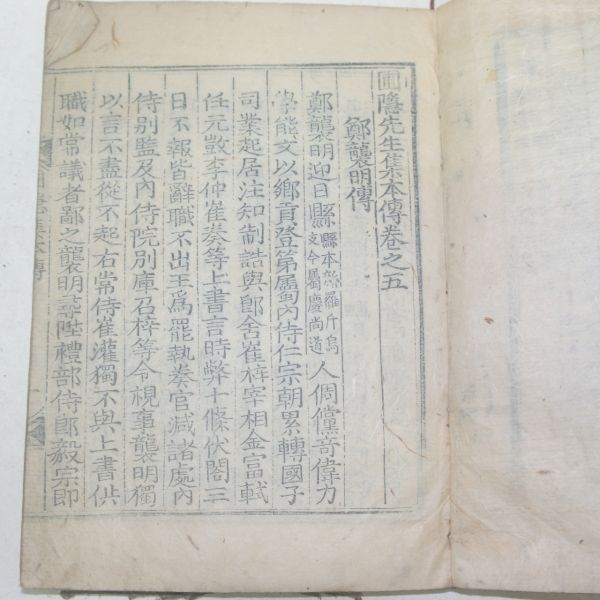 圃隱先生集本傳卷之五
鄭襲明傳
鄭襲明迎日縣縣本新羅斤烏支今屬慶尙道人倜儻奇偉力
學能文以鄕貢登第屬內侍仁宗朝累轉國子
司業起居注知制誥與郞舍崔梓宰相金富軾
任元敱李仲崔奏等上書言時弊十條伏閤三
日不報皆辭職不出王爲罷執奏官减諸處內
侍別監及內侍院別庫召梓等令視事襲明獨
以言不盡從不起右常侍崔灌獨不與上書供
職如常議者鄙之襲明尋陞禮部侍郞毅宗即